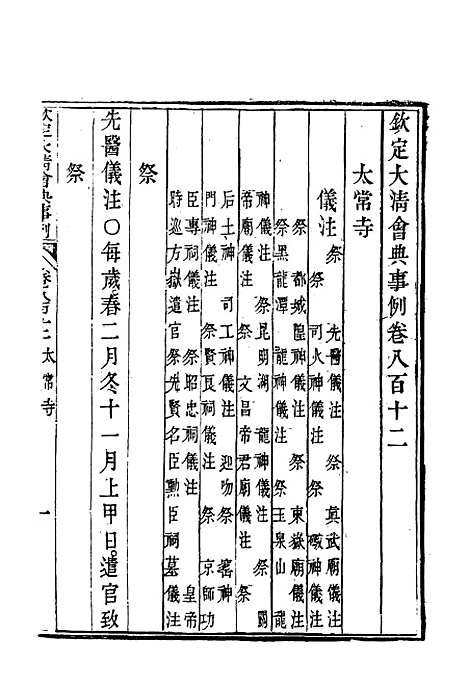 欽定大清會典事例卷八百十二
太常寺
儀注 祭 先醫儀注 祭 真武廟儀注
祭 司火神儀注 祭 礮神儀注
祭 都城隍神儀注 祭 東嶽廟儀注
祭黑龍潭 龍神儀注 祭玉泉山 龍
神儀注 祭昆明湖 龍神儀注 祭 關
帝廟儀注 祭 文昌帝君廟儀注 祭
后土神 司工神儀注 迎吻祭 窰神
門神儀注 祭賢良祠儀注 祭 京師功
臣專祠儀注 祭昭忠祠儀注 皇帝
時巡方嶽遣官祭先賢名臣勳臣祠墓儀注
祭
先醫儀注○每歲春二月冬十一月上甲日遣官致
祭
欽定大清會典事例 卷八百十二 太常寺 一